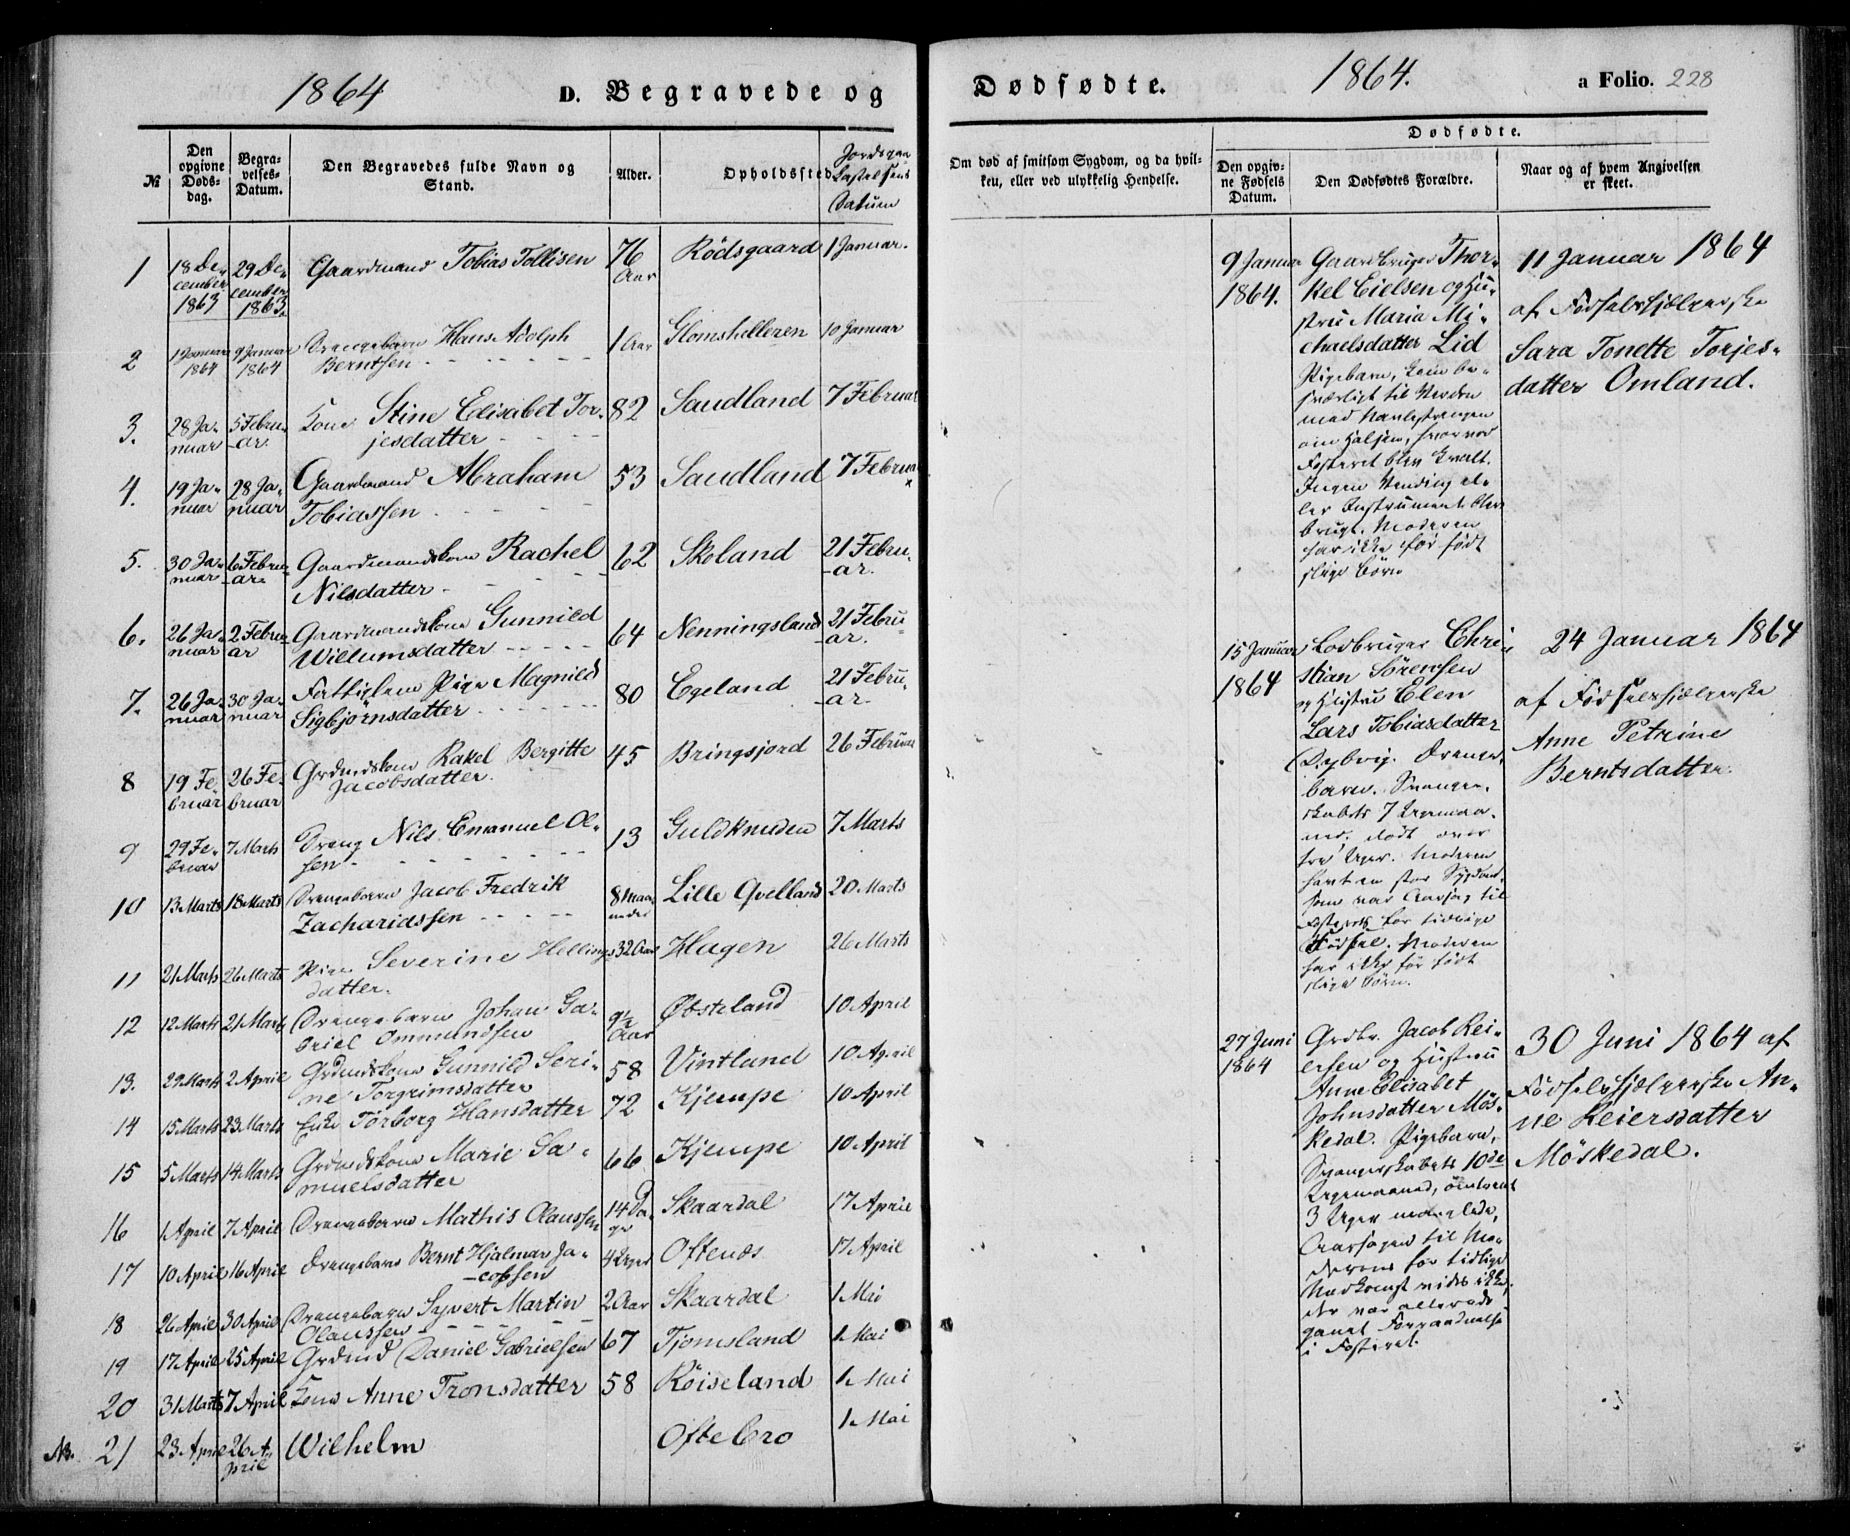 1864 D. Begravede og
№ Den opgivne Døds-dag. Begra-velses-Datum. Den Begravedes fulde Navn og Stand. Alder. Opholdssted. Jordspaa-kastelsens Datum
1 18 De-cember 1863 29 De-cember 1863. Gaardmand Tobias Tollisen 76 Aar Rödsgaard 1 Januar.
2 1 Januar 1864 9 Januar 1864 Drengebarn Hans Adolph Berntsen 1 Aar Glomshelleren 10 Januar
3. 28 Ja-nuar 5 Febru-ar. Kone Stine Elisabet Tor-jesdatter 82 Sandland 7 Februar
4. 19 Ja-nuar 28 Ja-nuar Gaardmand Abraham Tobiassen 53 Sandland 7 Februar
5. 30 Ja-nuar 6 Febru-ar. Gaardmandskone Rachel Nilsdatter 62 Skoland 21 Febru-ar.
6. 26 Ja-nuar 2 Febru-ar Gaardmandskone Gunnild Willumsdatter 64 Nenningsland 21 Febru-ar.
7. 26 Ja-nuar 30 Ja-nuar Fattiglem Pige Magnild Sigbjørnsdatter 80 Egeland 21 Febru-ar.
8 19 Fe-bruar 26 Fe-bruar Grdmdskone Rakel Bergitte Jacobsdatter. 45 Bringsjord 26 Februar
9 29 Fe-bruar 7 Marts Dreng Nils Emanuel Ol-sen 13 Guldknuden 7 Marts
10 13 Marts 18 Marts Drengebarn Jacob Fredrik Zachariassen 8 Maa-neder Lille Qvelland 20 Marts
11 21 Marts 26 Marts Pige Severine Hellings-datter. 32 Aar Hagen 26 Marts
12 12 Marts 21 Marts Drengebarn Johan Ga-briel Ommundsen 9½ Aar Øbsteland 10 April
13. 29 Marts 2 April Grdmdskone Gunnild Seri-ne Torgrimsdatter 58 Vintland 10 April
14 15 Marts 23 Marts Enke Torborg Hansdatter 72 Kjempe 10 April
15 5 Marts 14 Marts Grdmdskone Marie Sa-muelsdatter 66 Kjempe 10 April
16 1 April 7 April Drengebarn Mathis Olaussen 14 Da-ge Skaardal 17 April
17 10 April 16 April Drengebarn Bernt Hjalmar Ja-cobsen 4 Uger Oftenæs 17 April
18 26 April 30 April Drengebarn Syvert Martin Olaussen 2 Aar Skaardal 1 Mai
19 17 April 25 April Grdmd Daniel Gabrielsen 67 Tjomsland 1 Mai
20 31 Marts 7 April Kone Anne Tronsdatter 58 Röiseland 1 Mai
NB. 21 23 April 26 A-pril Wilhelm Oftebro 1 Mai
Dødfødte. 1864. a Folio. 228
Om død af smitsom Sygdom, og da hvil-ken, eller ved ulykkelig Hendelse.
Dødfødte.
Den opgiv-ne Fødsels Datum. Den Dødfødtes Forældre. Naar og af hvem Angivelsen er skeet.
9 Januar
1864.
Gaardbruger Thor-
kel Eielsen og Hu-
stru Maria Mi-
chaelsdatter Lid
Pigebarn, kom be-
sværligt til Verden
med Navlestrengen
om Halsen, hvorved
Fosteret blev kvalt.
Ingen Vending el-
ler Instrument blev
brugt. Moderen
har ikke før født
slige Börn
11 Januar 1864
af Födselshjælperske
Sara Tonette Torjes-
datter Omland.
15 Januar
1864
Lodbruger Chri-
stian Sörensen
og Hustru Elen
Lars Tobiasdatter
Dybvig. Drenge-
barn. Svanger-
skabets 7 Ugemaa-
ned, dödt over
tre Uger. Moderen
havt en stor Sygdom,
som var Aarsag til
Fosterets for tidlige
Födsel. Moderen
har ikke før født
slige Börn.
24 Januar 1864
af Födselshjælperske
Anne Petrine
Berntsdatter.
27 Juni
1864
Grdbr. Jacob Rei-
ersen og Hustru
Anne Elisabet
Johnsdatter Mös-
kedal. Pigebarn,
Svangerskabets 10de
Ugemaaned, omtrent
3 Uger manglede,
Aarsagen til Mo-
derens for tidlige
Nedkomst vides ikke,
der var allerede
gaaet Forraadnelse
i Fosteret.
30 Juni 1864 af
Födselshjælperske An-
ne Reiersdatter
Möskedal.